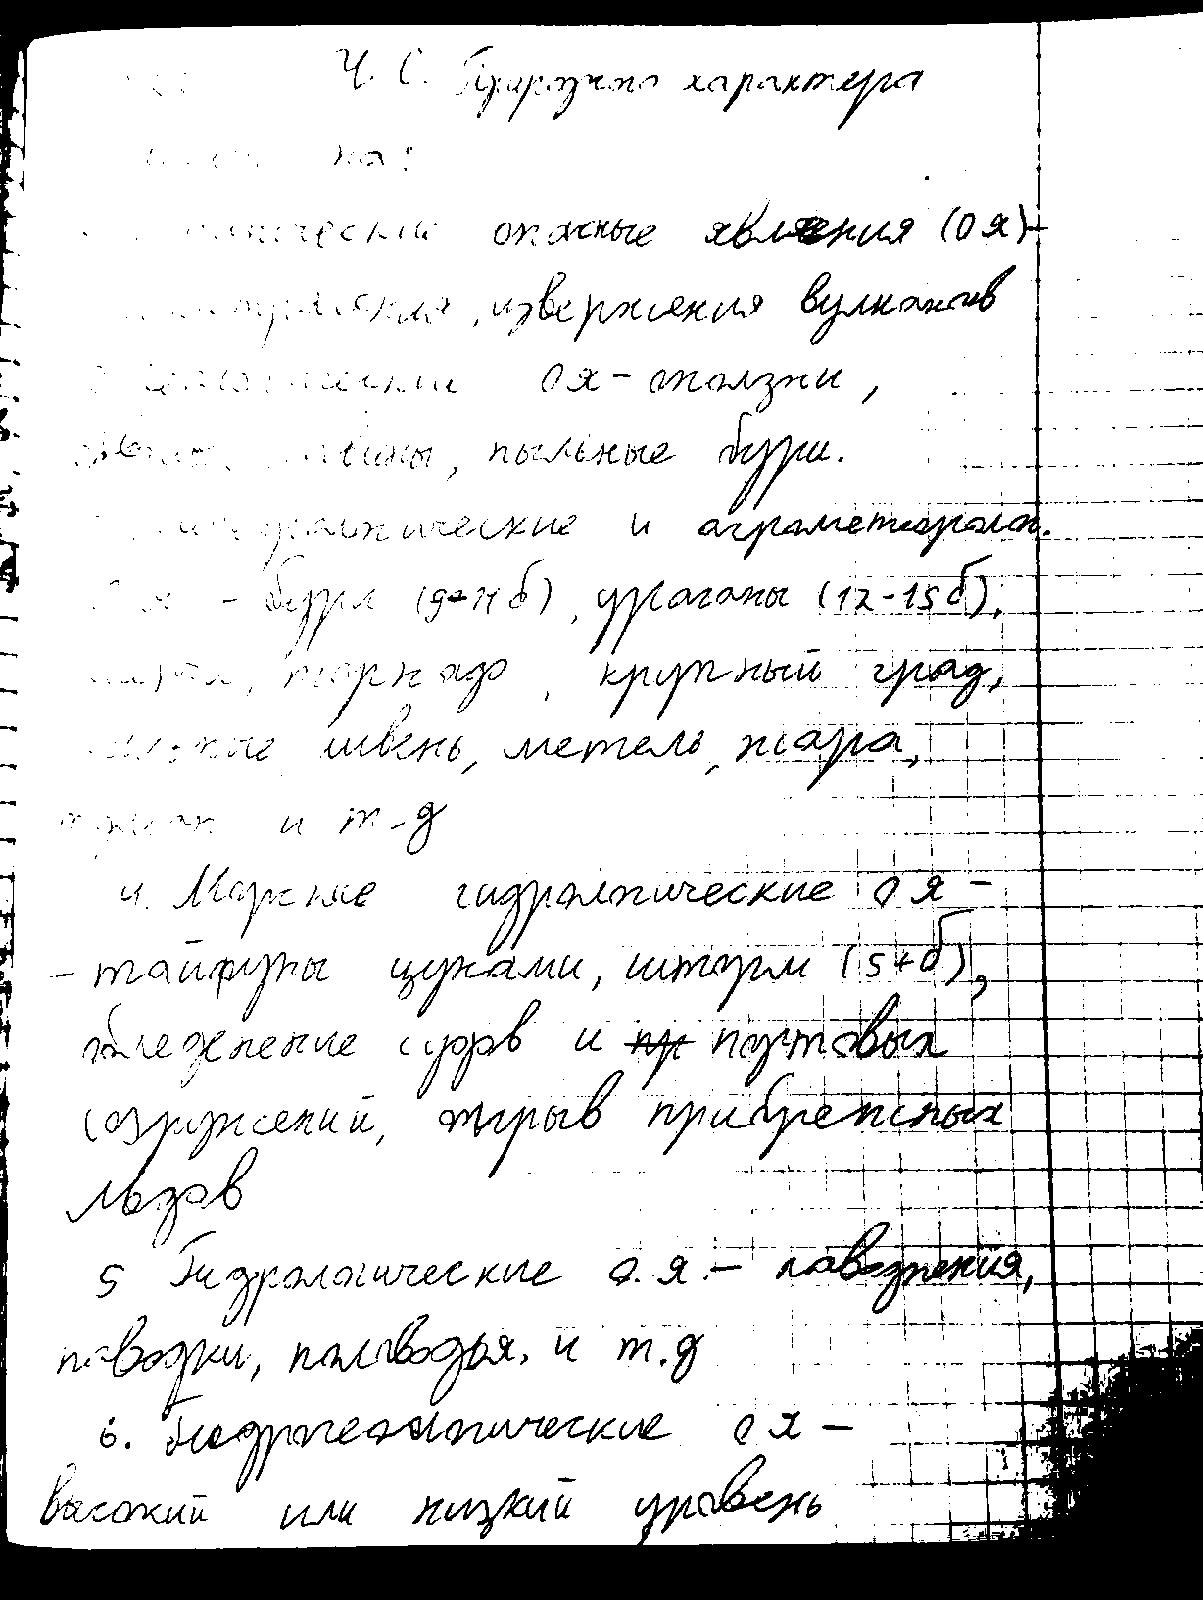 Ч. С. Природного характера
на:
опасные явления (ОЯ)-
извержения вулканов
ОЯ - оползни,
пыльные бури.
и агрометеоролог.
ОЯ - буря (9-11б), ураганы (12-15б),
торнадо, крупный град,
ливень, метель, жара,
и т.д
4. Морские гидрологические ОЯ -
- тайфуны цунами, шторм (5+б),
обледенение судов и портовых
сооружений, отрыв прибрежных
льдов
5 Гидрологические о.я. - наводнения,
паводки, половодья, и т.д
6. Гидрогеологические ОЯ -
высокий или низкий уровень